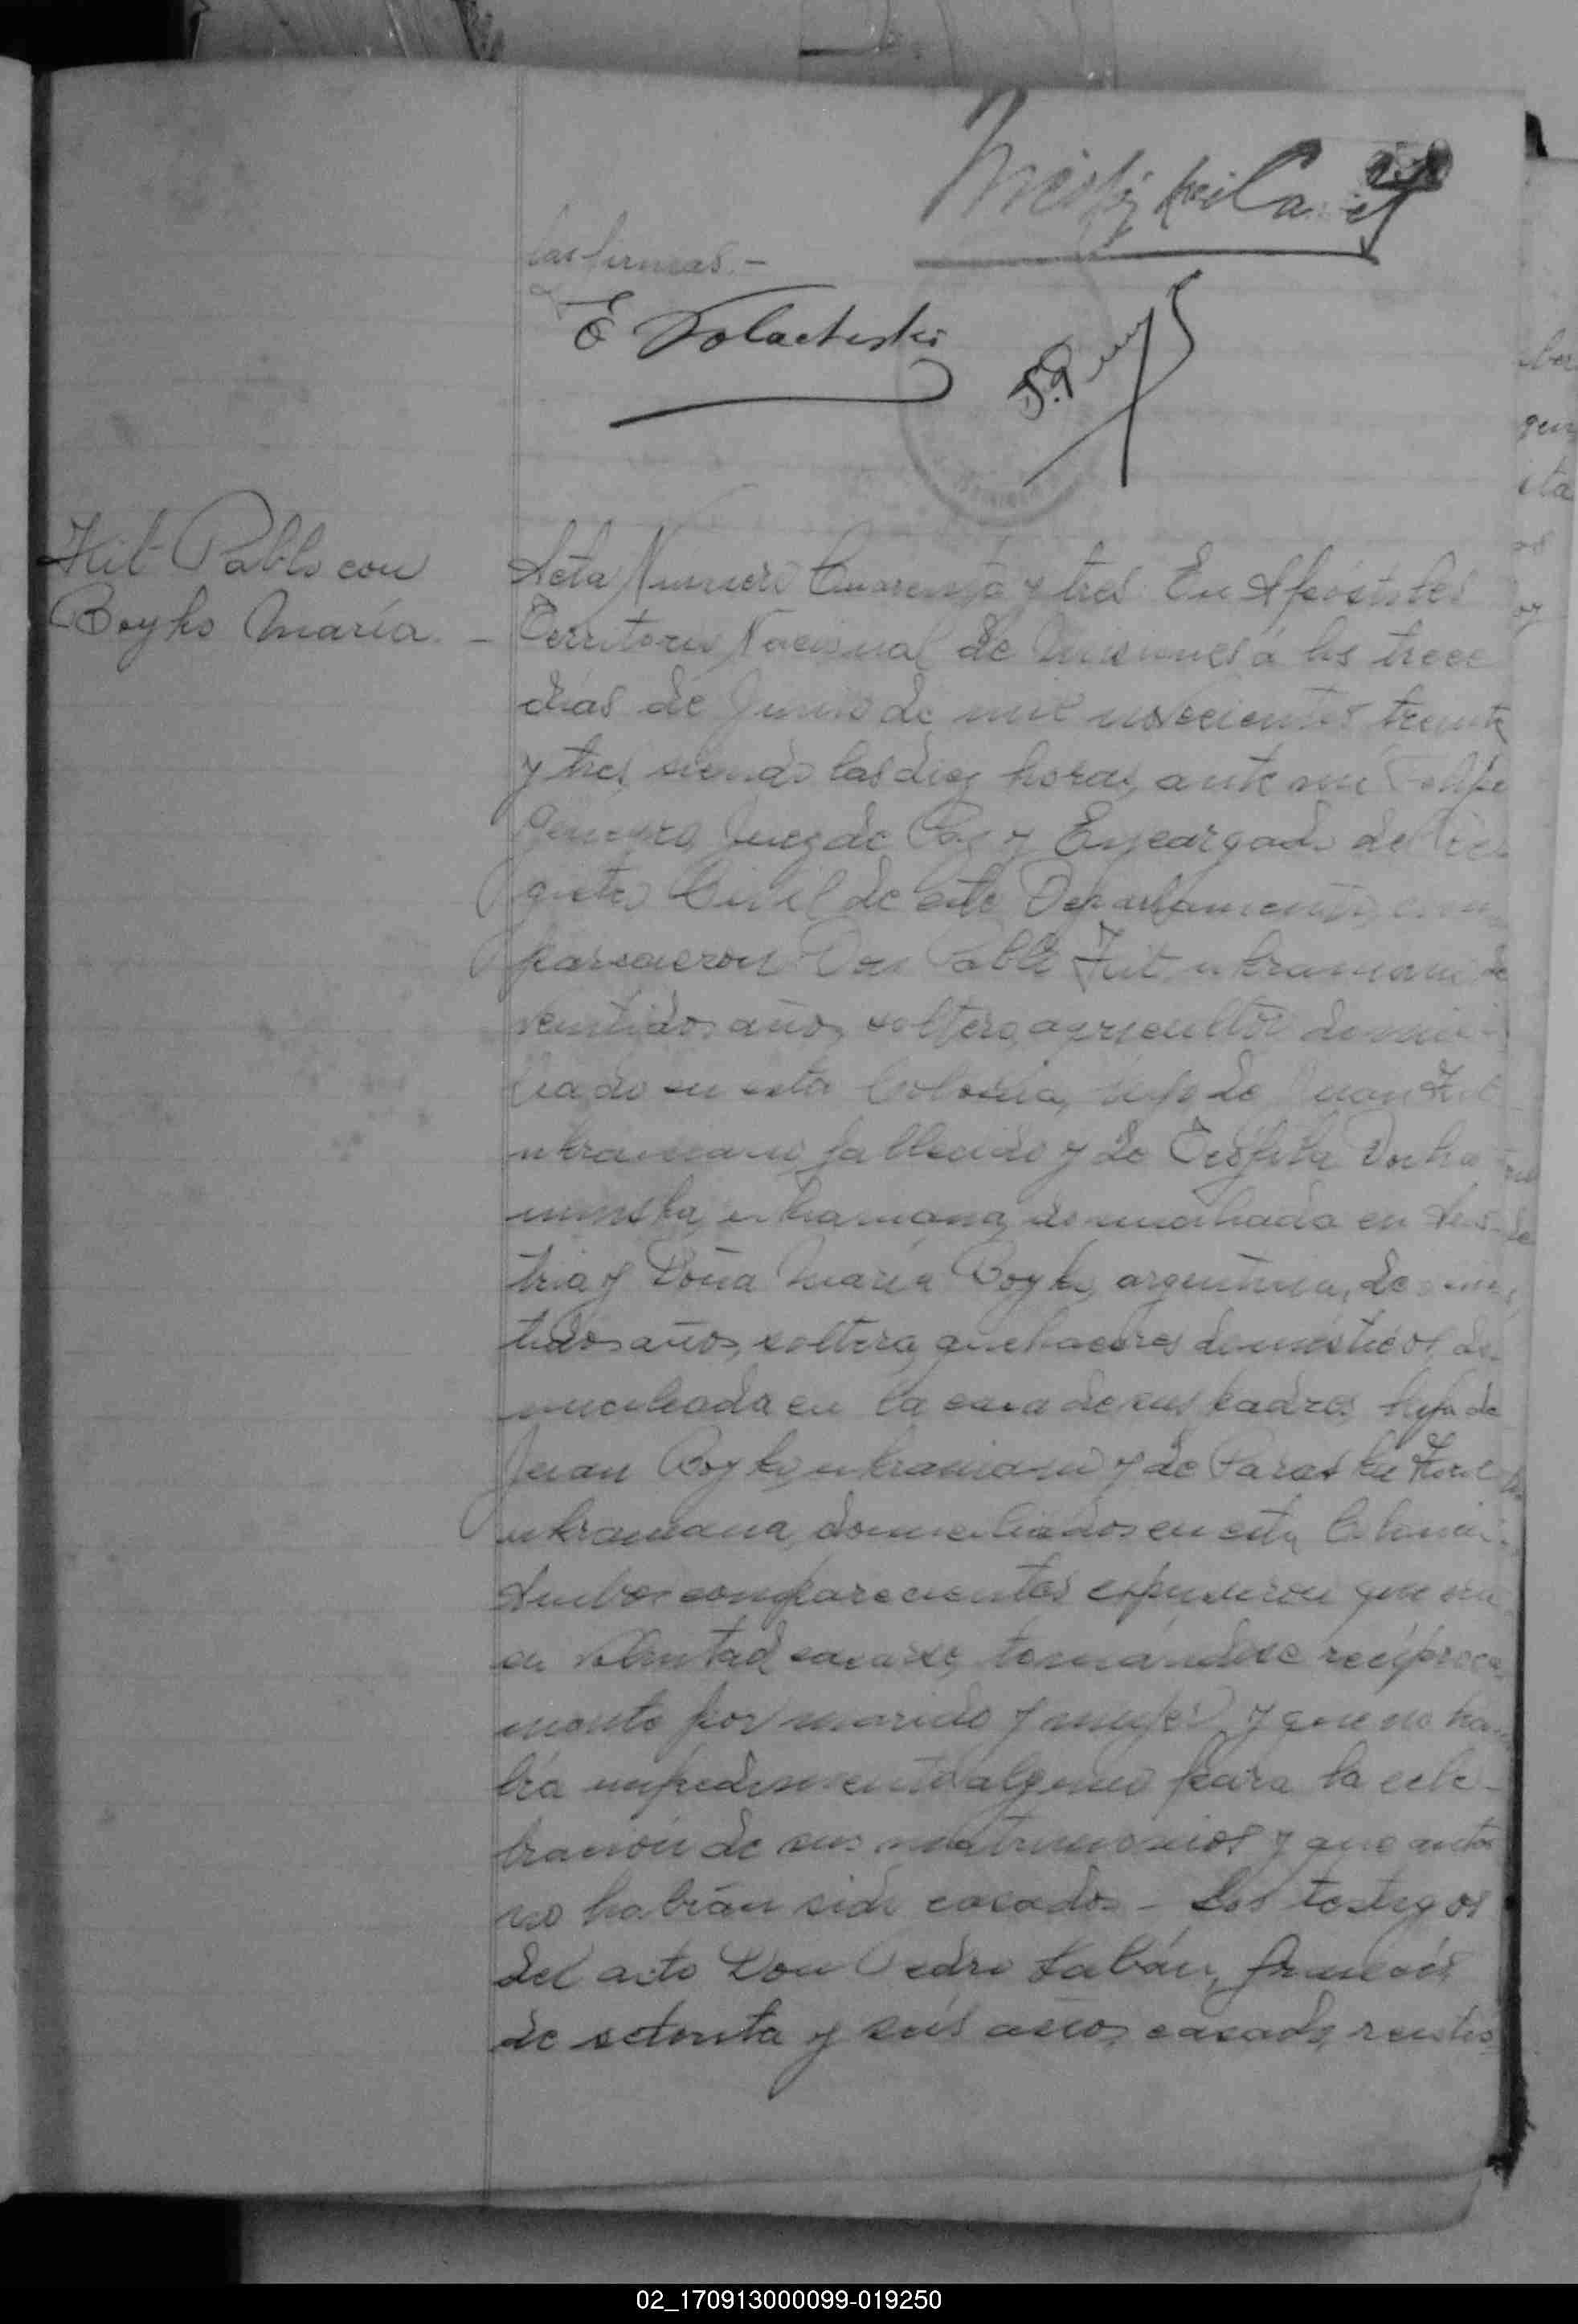 las firmas.-
E Kolachuski
Kit Pablo con
Boyko María. -
Acta Numero Cuarenta y tres En Apóstoles
Territorio Nacional de Misiones á los trece
días de Junio de mil novecientos treinta
y tres, siendo las diez horas, ante mi Felipe
Juez de Paz y Encargado del Re
gistro Civil de este Departamento, com
parecieron Don Pablo Kit, ukraniano, de
veintidos años, soltero, agricultor, domici
liado en esta Colonia, hijo de Juan Kit
ukraniano, fallecido y de Teófila
ukraniana, domiciliada en Aus
tria y Doña María Boyko, argentina, de vein
tidos años, soltera, quehaceres domésticos, do
miciliada en la casa de sus padres, hija de
Juan Boyko, ukraniano y de Paraska
ukraniana, domiciliados en esta Colonia.
Ambos comparecientes expusieron que era
su voluntad casarse, tomándose recíproca
mente por marido y mujer y que no ha
bía impedimento alguno para la cele-
bración de sus matrimonios y que antes
no habían sido casados - Los testigos
del acto Don Pedro Labán, francés
de setenta y seis años, casado, rentis
02_170913000099-019250